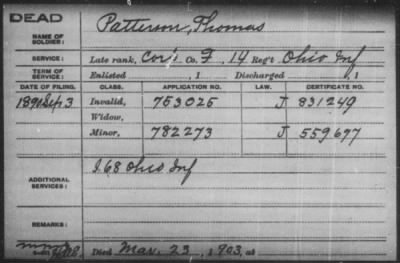 DEAD
NAME OF SOLDIER: Patterson, Thomas
SERVICE: Late rank, Co. F, 14 Reg't Ohio Inf
TERM OF SERVICE: Enlisted , 1 Discharged , 1
DATE OF FILING. CLASS. APPLICATION NO. LAW. CERTIFICATE NO.
Sep 3 Invalid, 753025 J 831249
Widow,
Minor, 782273 J 559677
ADDITIONAL SERVICES: I. 68 Ohio Inf
REMARKS:
Died Mar. 23, 1903, at